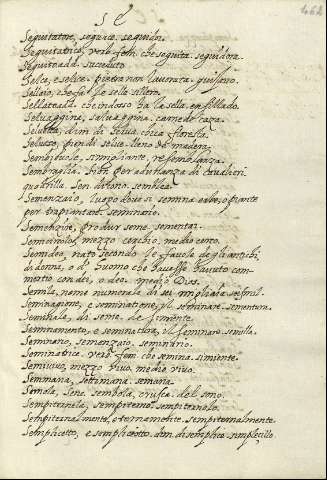 462
S E
Seguitatore, seguace. seguidor.
Seguitatrice, verb. fem. che seguita. seguidora.
Seguitenza. suceduto
Selce, e selice. pietra non lavorata. guijarro.
Sellaio, che fa le selle. sillero.
Sellateada. che indosso ha la sella. ensillado.
Selvaggina, salvaggina. carne de caza.
Selvetta, dim. di selva. chica floresta.
Selvoso, pien di selve. lleno de madera.
Sembievole, simigliante, resemblanza.
Sembraglia. Sign. per adunanza di cavalieri
quadriglia. Sen. dicono. semblea.
Semenzaio, luogo dove si semina erbe, o piante
per trapiantare. seminario.
Sementire, produr seme. sementar.
Semicircolo, mezzo cerchio. medio cerco.
Semideo, nato secondo le favole degli antichi,
di donna, o d' uomo che havesse havuto com-
mertio con dei, o dee. medio Dios.
Semila, nome numerale di sei migliaia. seis mil.
Seminagione, e seminatione, il seminare. sementera.
Seminale, di seme. de simiente.
Seminamento, e seminatura, il seminare. semilla.
Seminario, semenzaio. seminario.
Seminatrice. verb. fem. che semina. simiente.
Semivivo, mezzo vivo. medio vivo.
Semmana, settimana. semana
Semola, Sene. sembola, crusca. del sono.
Sempiternela, sempiterno. sempiternolo.
Sempiternalmente, eternamente. sempiternalmente.
Semplicetto, e sempliciotto. dim. di semplice. simplecillo.